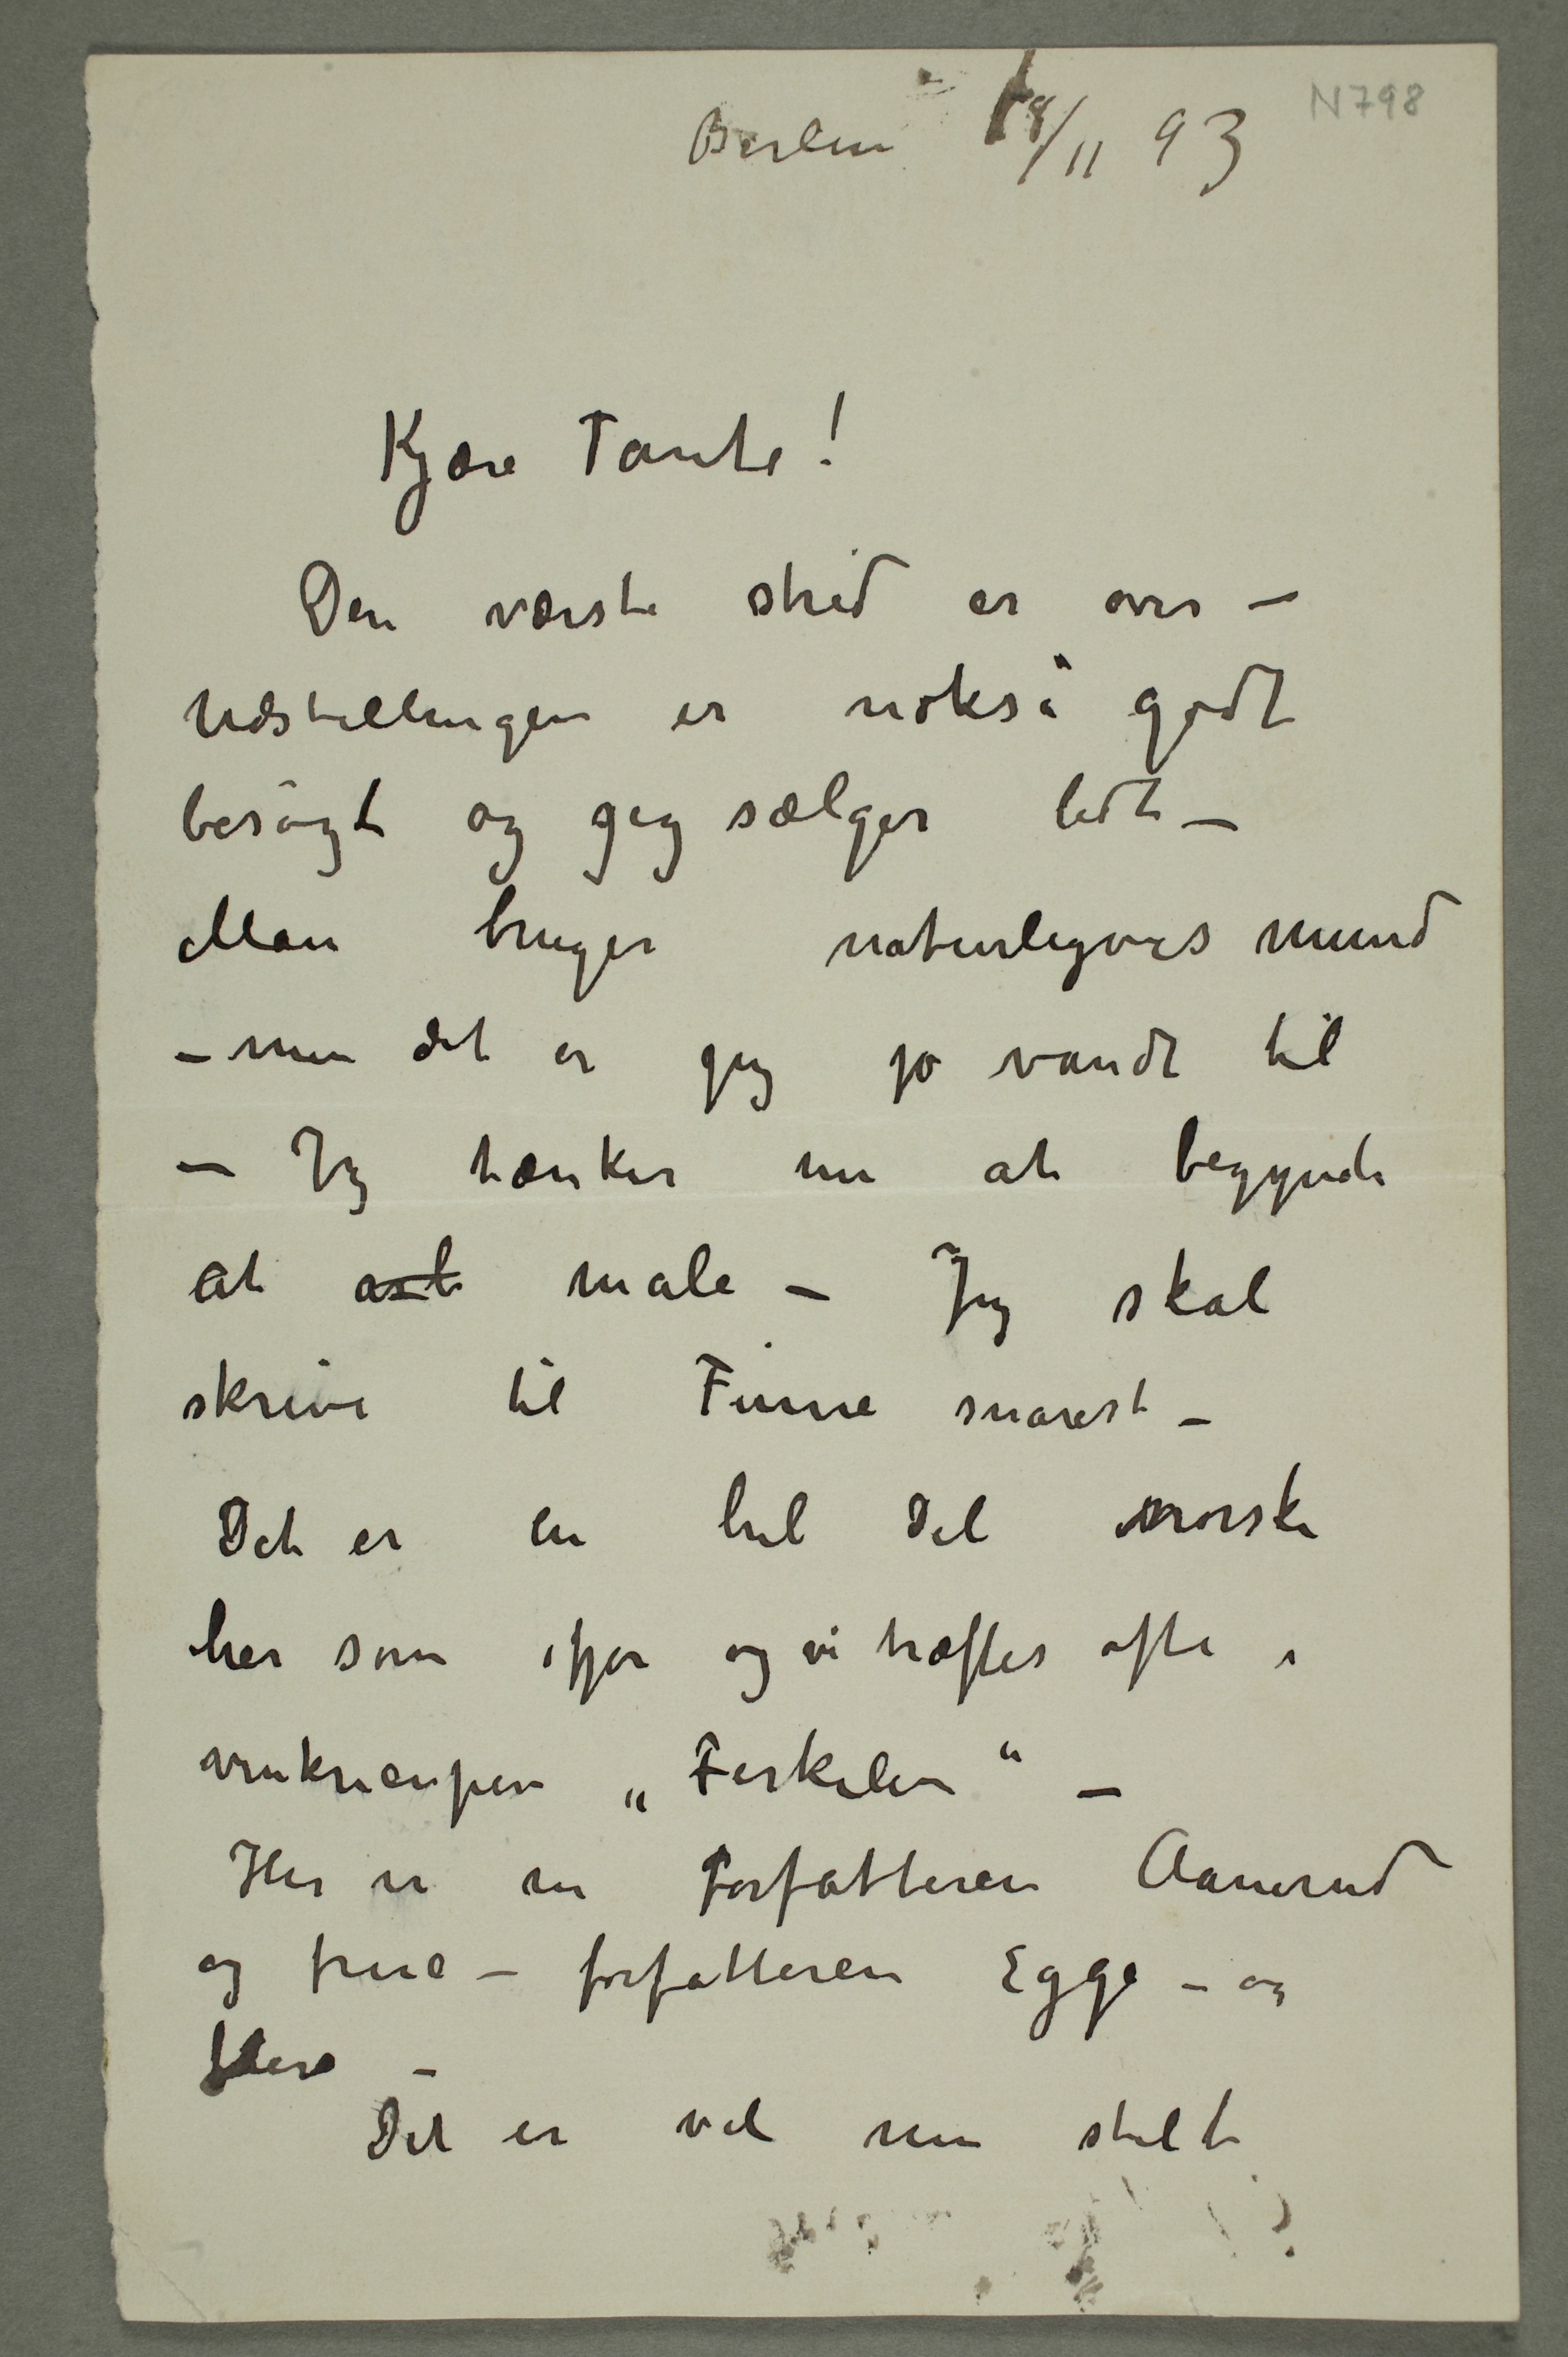 N798
Berlin 18/11 93
Kjære Tante!
Den værste strid er over –
Udstillingen er nokså godt
besøgt og jeg sælger lidt –
Man bruger naturligvis mund
– men det er jeg jo vandt til
– Jeg tænker nu at begynde
at male – Jeg skal
skrive til Finne snarest –
Det er en hel del norske
her som ifjor og vi træffes ofte i
vinkneipen „Ferkelen“ –
Her er nu Forfatteren Aanerud
og frue – forfatteren Egge – og
flere –
Det er vel nu stelt